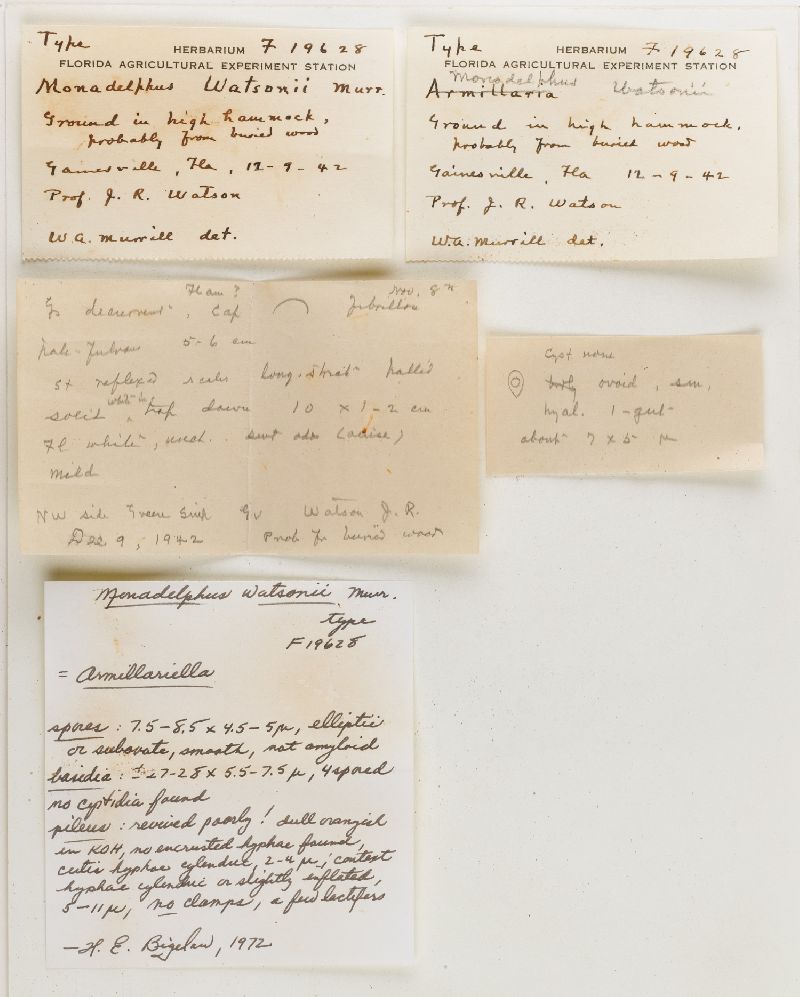 Type
HERBARIUM F 19628
FLORIDA AGRICULTURAL EXPERIMENT STATION
Monadelphus Watsonii Murr.
Ground in high hammock,
probably from buried wood
Gainesville, Fla, 12-9-42
Prof. J. R. Watson
W.A. Murrill det.
Type
HERBARIUM F 19628
FLORIDA AGRICULTURAL EXPERIMENT STATION
Monadelphus
Armillaria Watsonii
Ground in high hammock,
probably from buried wood
Gainesville, Fla 12-9-42
Prof. J. R. Watson
W.A. Murrill det.
Ham? Nov. 8
decurrent, Cap fibrillose
pale-fulvous 5-6 cm
st reflexed scales long. striate pallid
solid, white in top down 10 x 1-2 cm
Fl white, odor (anise)
mild
NW side Gv Watson J. R.
Dec 9, 1942 Prob fr buried wood
Cyst none
ovoid, sm,
hyal. 1-gut
about 7 x 5 µ
Monadelphus Watsonii Murr.
type
F19628
= Armillariella
spores: 7.5-8.5 x 4.5-5µ, elliptic
or subovate, smooth, not amyloid
basidia: ± 27-28 x 5.5-7.5 µ, 4 spored
no cystidia found
pileus: revived poorly! dull orangish
in KOH, no encrusted hyphae found,
cutis hyphae cylindric, 2-4 µ; context
hyphae cylindric or slightly inflated,
5-11µ, no clamps, a few lactifers
—H. E. Bigelow, 1972